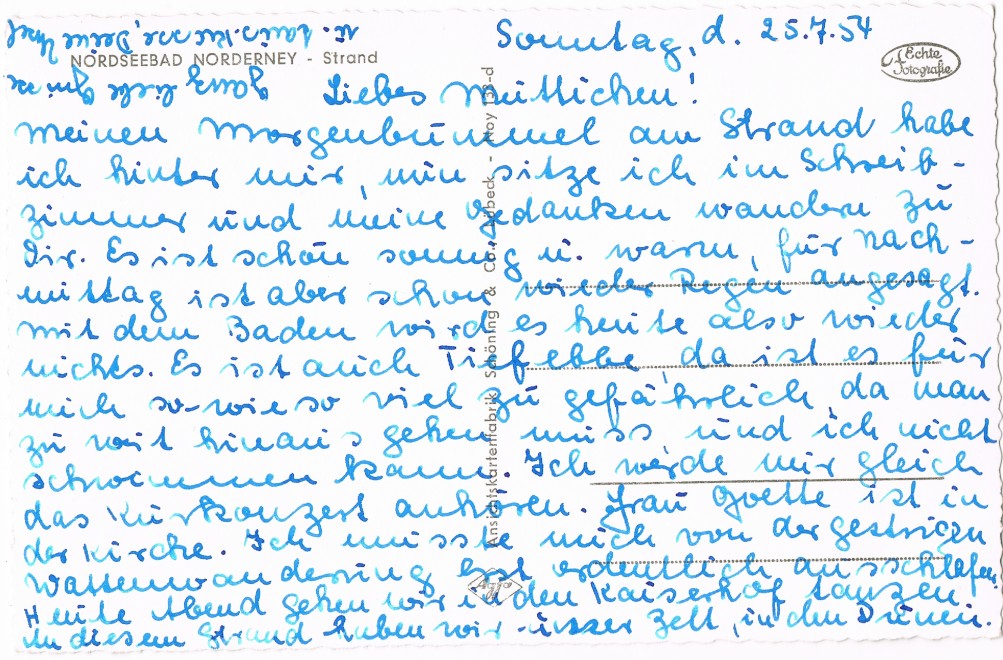 Sonntag, d. 25.7.54
NORDSEEBAD NORDERNEY - Strand
Echte Fotografie
Liebes Muttichen!
Meinen Morgenbummel am Strand habe
ich hinter mir, nun sitze ich im Schreib-
zimmer und meine Gedanken wandern zu
Dir. Es ist schön sonnig u. warm, für Nach-
mittag ist aber schon wieder Regen angesagt.
Mit dem Baden wird es heute also wieder
nichts. Es ist auch Tiefebbe, da ist es für
mich so-wie so viel zu gefährlich, da man
zu weit hinaus gehen muss, und ich nicht
schwimmen kann. Ich werde mir gleich
das Kurkonzert anhören. Frau Goette ist in
der Kirche. Ich musste mich von der gestrigen
Wattenwanderung erst ordentlich ausschlafen.
Heute Abend gehen wir in den Kaiserhof tanzen.
An diesem Strand haben wir unser Zelt, in den Dünen.
Ganz liebe Grüsse
u. Deine
Ansichtskartenfabrik Schöning & Co., Lübeck - Noy 138-d
Agfa